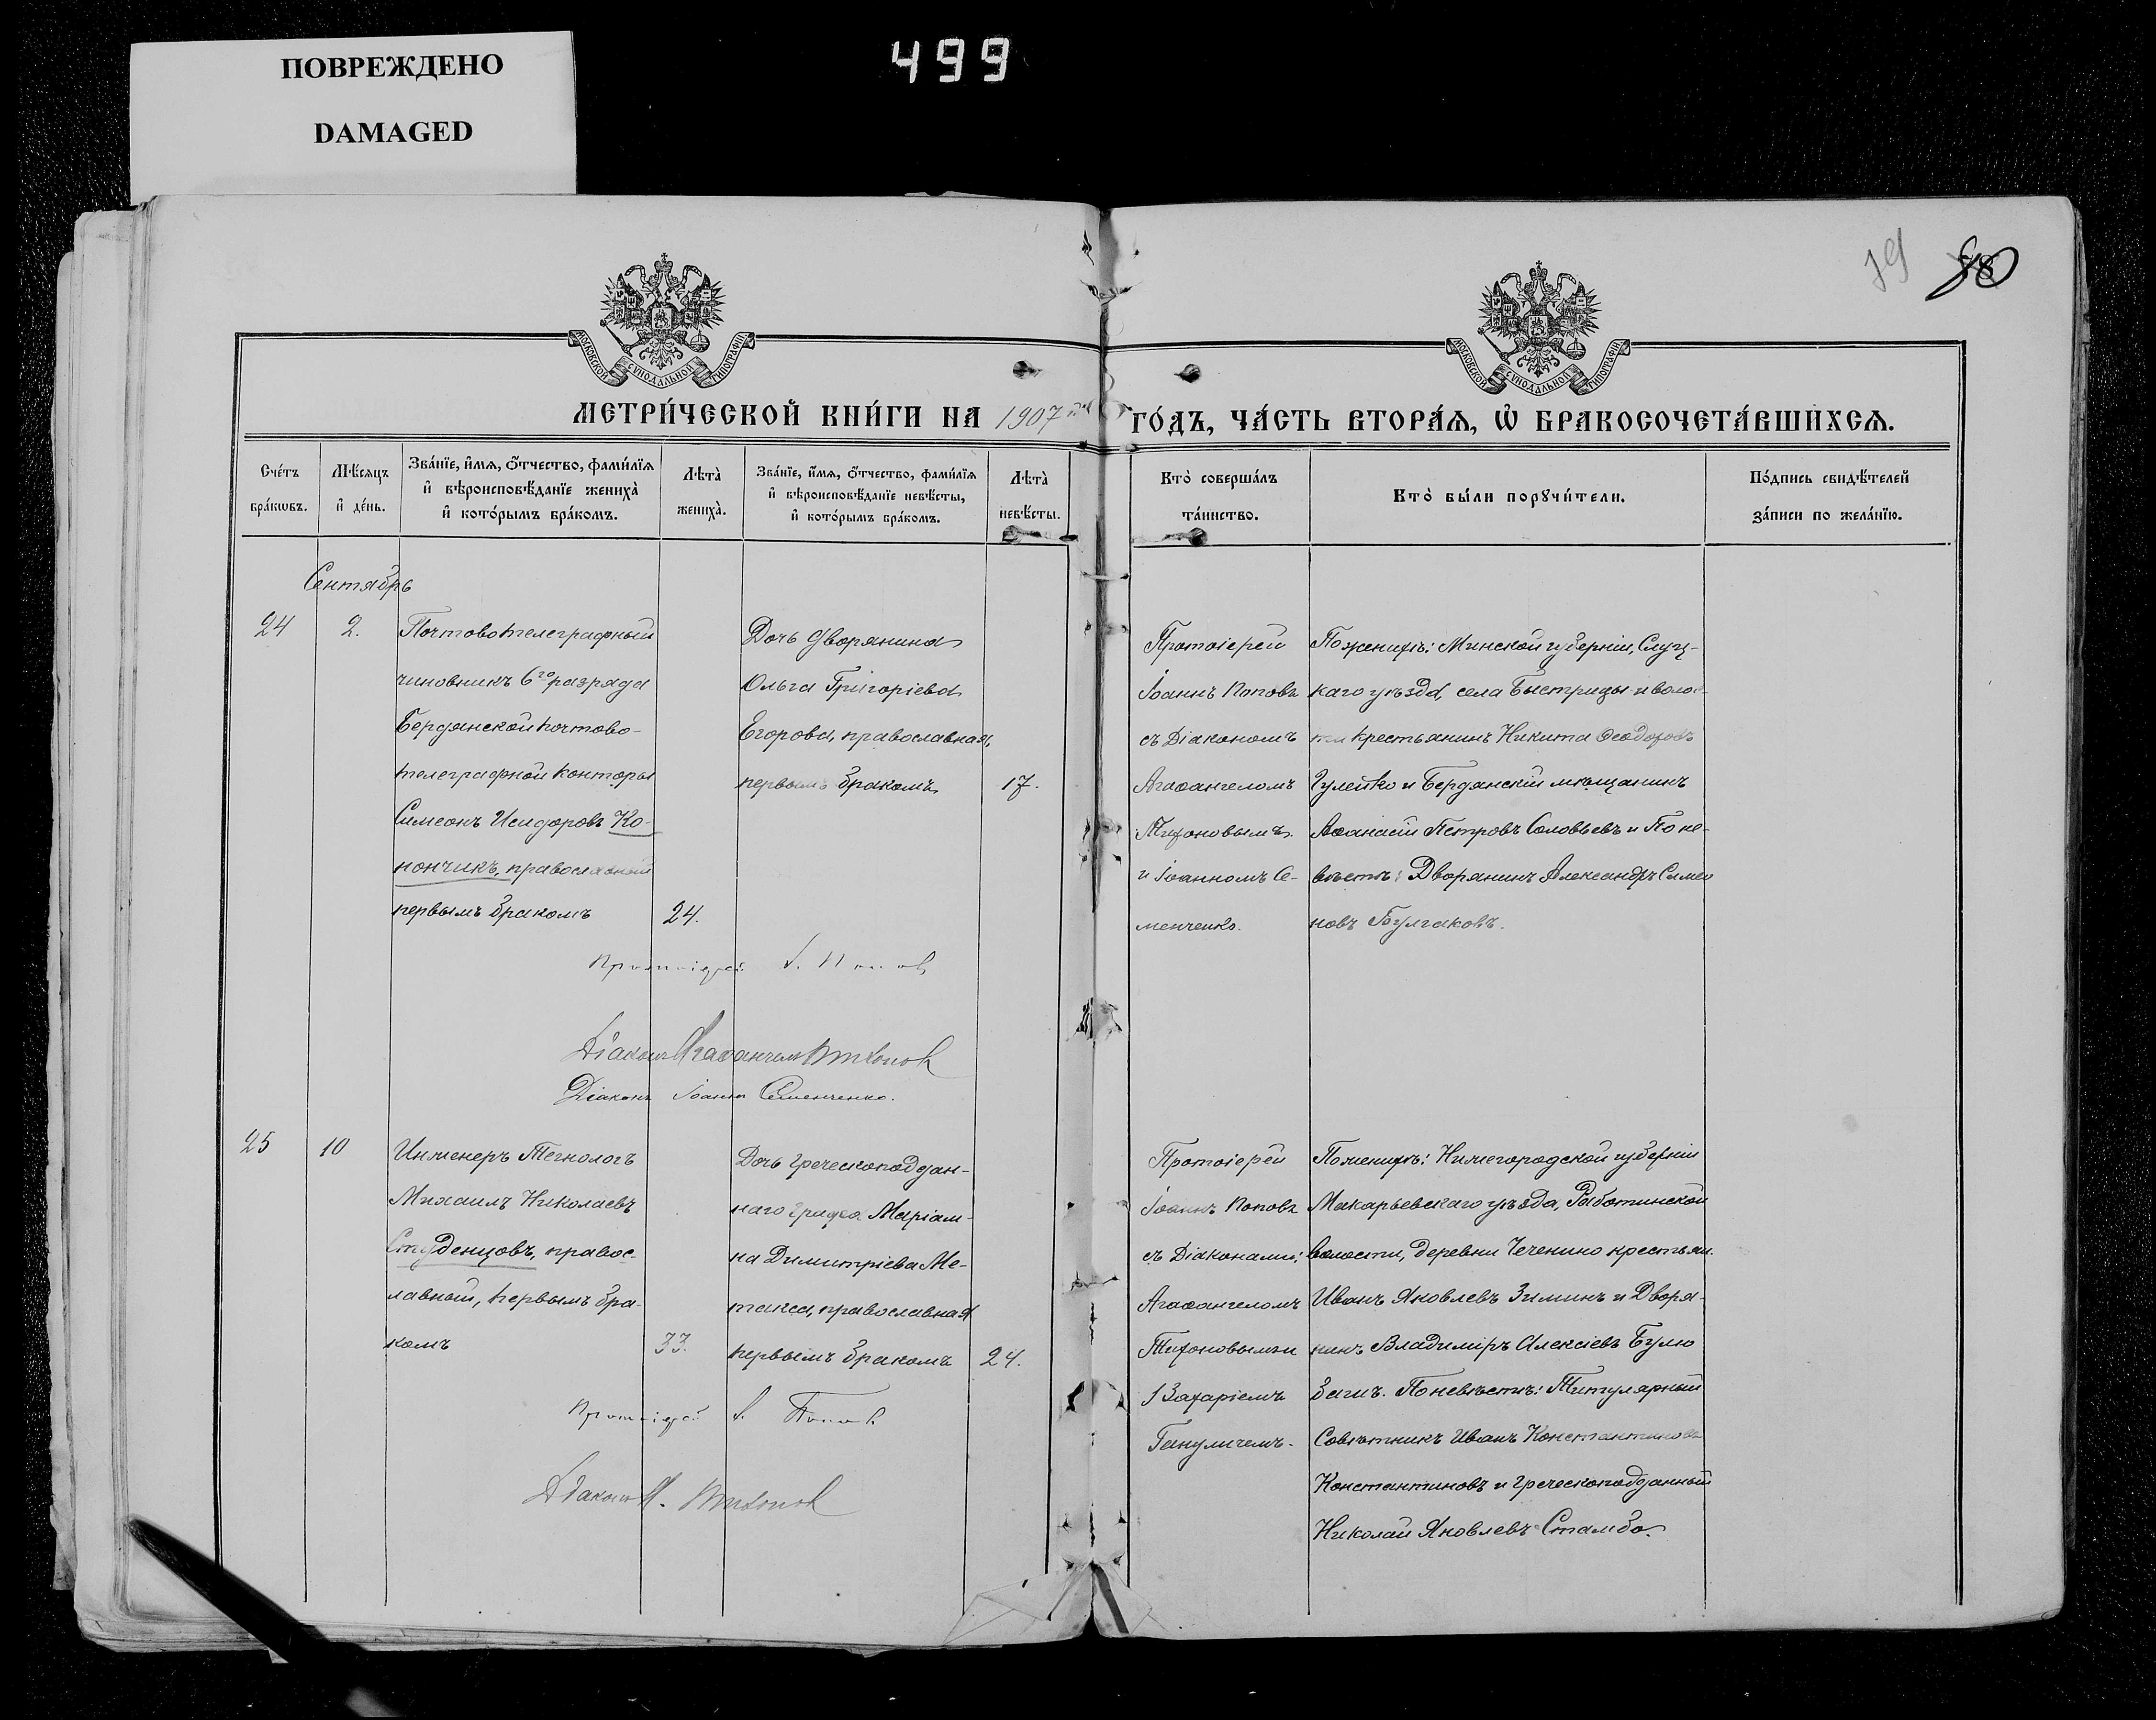 ПОВРЕЖДЕНО
DAMAGED
499
79
80
МОСКОВСКОЙ СѴНОДАЛЬНОЙ ТИПОГРАФІИ
МОСКОВСКОЙ СѴНОДАЛЬНОЙ ТИПОГРАФІИ
МЕТРИ́ЧЕСКОЙ КНИ́ГИ НА 1907 ГО́ДЪ, ЧА́СТЬ ВТОРА́Ѧ, Ѽ БРАКОСОЧЕТА́ВШИХСѦ.
Сче́тъ
бра́кѡвъ.
Мѣ́сѧцъ
и҆ де́нь.
Зва́нїе, и҆́мѧ, ѻ҆́тчество, фами́лїѧ
и҆ вѣроисповѣ́данїе жениха̀
и҆ кото́рымъ бра́комъ.
Лѣта̀
жениха̀.
Зва́нїе, и҆́мѧ, ѻ҆́тчество, фами́лїѧ
и҆ вѣроисповѣ́данїе невѣ́сты,
и҆ кото́рымъ бра́комъ.
Лѣта̀
невѣ́сты.
Кто̀ соверша́лъ
та́инство.
Кто̀ бы́ли порꙋчи́тели.
По́дпись свидѣ́телей
за́писи по жела́нїю.
Сентябрь
24
2.
Почтовотелеграфный
чиновникъ 6го разряда
Бердянской почтово-
телеграфной конторы
Симеонъ Исидоровъ Ко-
нончикъ, православный
первымъ бракомъ
24.
Дочь дворянина
Ольга Григоріева
Егорова, православная,
первымъ бракомъ
17.
Протоіерей
Іоаннъ Поповъ
съ Діакономъ
Агаѳангеломъ
Тихоновымъ
и Іоанномъ Се-
менченко.
По женихѣ: Минской губерніи, Слуц-
каго уѣзда, села Быстрицы и волос-
ти крестьянинъ Никита Ѳеодоровъ
Гулейко и Бердянскій мѣщанинъ
Аѳанасій Петровъ Соловьевъ и По не-
вѣстѣ: Дворянинъ Александръ Симео
новъ Булгаковъ.
Протоіерей І. Попов
Діаконъ Агаѳангелъ Тихонов
Діаконъ Іоаннъ Семенченко.
25
10
Инженеръ Технологъ
Михаилъ Николаевъ
Студенцовъ, правос-
лавный, первымъ бра-
комъ
33.
Дочь греческоподдан-
наго грека Маріам-
на Димитріева Ме-
такса, православная
первымъ бракомъ
24.
Протоіерей
Іоаннъ Поповъ
съ Діаконами:
Агаѳангеломъ
Тихоновымъ и
Захаріемъ
По женихѣ: Нижегородской губерніи
Макарьевскаго уѣзда, Работинской
волости, деревни Чеченино крестьян.
Иванъ Яковлевъ Зиминъ и Дворя-
нинъ Владиміръ Алексіевъ Булю
башъ. По невѣстѣ: Титулярный
Совѣтникъ Иванъ Константиновъ
Константиновъ и греческоподданный
Николай Яковлевъ Стамбо.
Протоіерей І. Попов
Діаконъ А. Тихонов